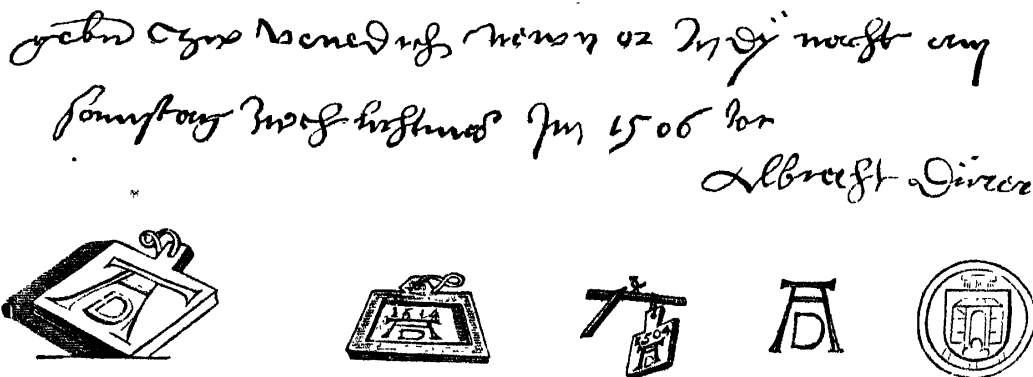 gebn Czw Venedich newn or In dÿ nacht am
samstag noch lichtmes Im 1506 Ior
Albrecht Dürer
AD
1514 AD
1504 AD
AD